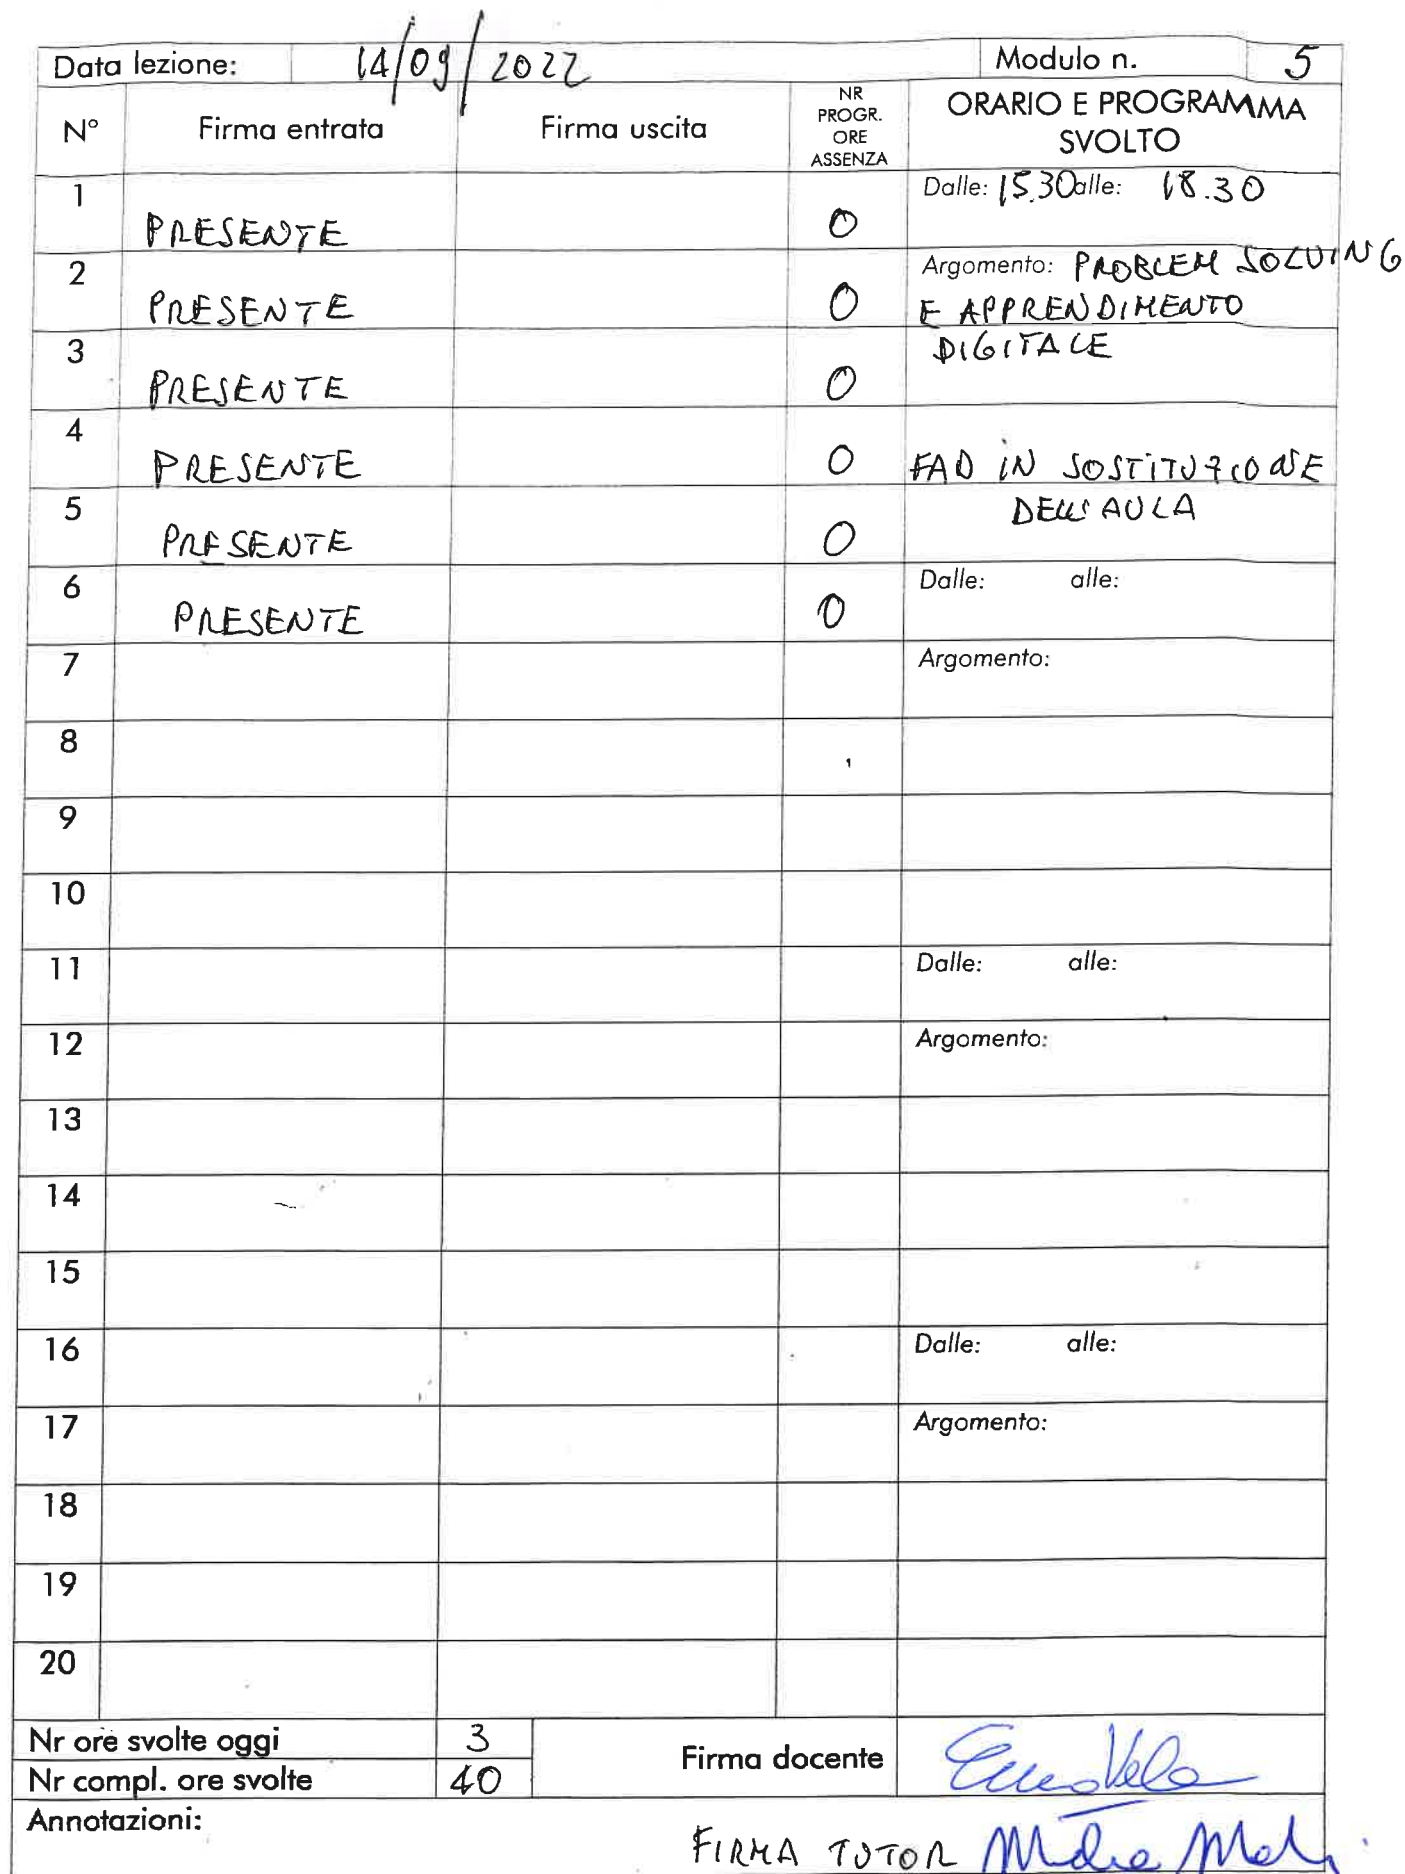 Data lezione: 14/09/2022 Modulo n. 5
N° Firma entrata Firma uscita NR PROGR. ORE ASSENZA ORARIO E PROGRAMMA SVOLTO
1 PRESENTE 0 Dalle: 15.30 alle: 18.30
2 PRESENTE 0 Argomento: PROBLEM SOLVING
E APPRENDIMENTO
3 PRESENTE 0 DIGITALE
4 PRESENTE 0 FAD IN SOSTITUZIONE
5 PRESENTE 0 DELL'AULA
6 PRESENTE 0 Dalle: alle:
7 Argomento:
8
9
10
11 Dalle: alle:
12 Argomento:
13
14
15
16 Dalle: alle:
17 Argomento:
18
19
20
Nr ore svolte oggi 3 Firma docente
Nr compl. ore svolte 40
Annotazioni:
FIRMA TUTOR